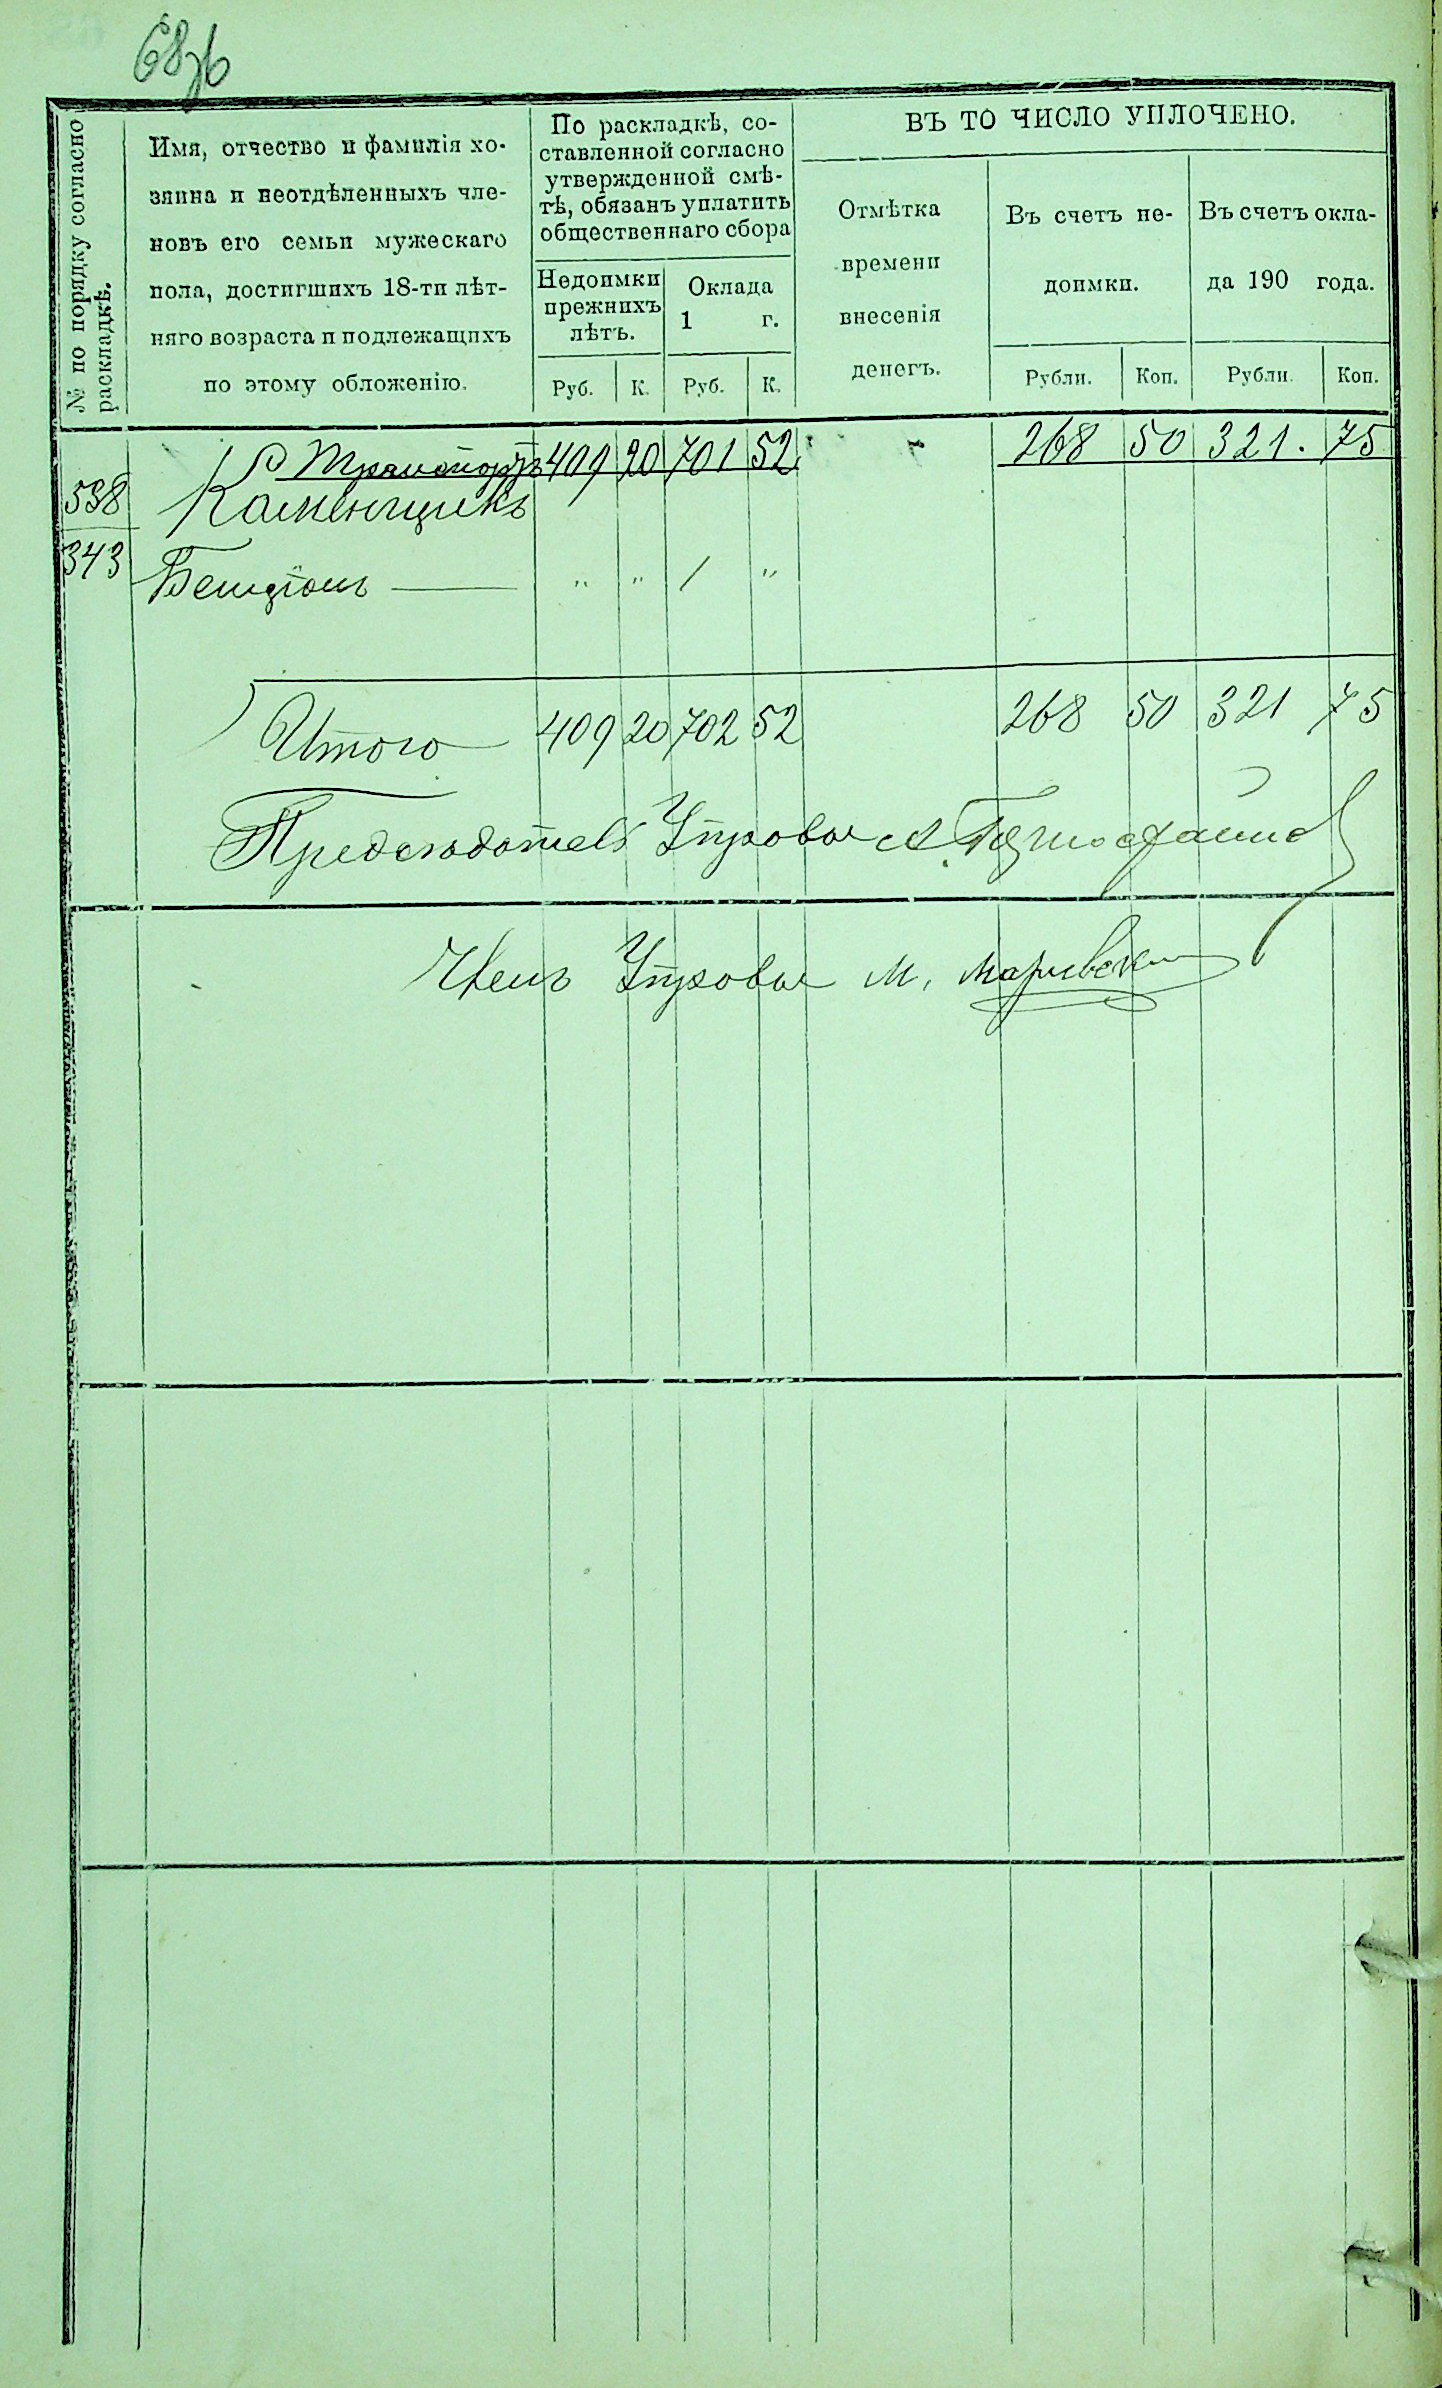 68об
№ по порядку согласно
раскладкѣ.
Имя, отчество и фамилія хо-
зяина и неотдѣленныхъ чле-
новъ его семьи мужескаго
пола, достигшихъ 18-ти лѣт-
няго возраста и подлежащихъ
по этому обложенію.
По раскладкѣ, со-
ставленной согласно
утвержденной смѣ-
тѣ, обязанъ уплатить
общественнаго сбора
Недоимки
прежнихъ
лѣтъ.
Оклада
1 г.
Руб. К. Руб. К.
ВЪ ТО ЧИСЛО УПЛОЧЕНО.
Отмѣтка
времени
внесенія
денегъ.
Въ счетъ не-
доимки.
Въ счетъ окла-
да 190 года.
Рубли. Коп. Рубли. Коп.
Транспортъ 409 20 701 52 268 50 321. 75
538 Каменщикъ
343 Бенціонъ — " " 1 "
Итого 409 20 702 52 268 50 321 75
Предсѣдатель Управы А.
Членъ Управы М.